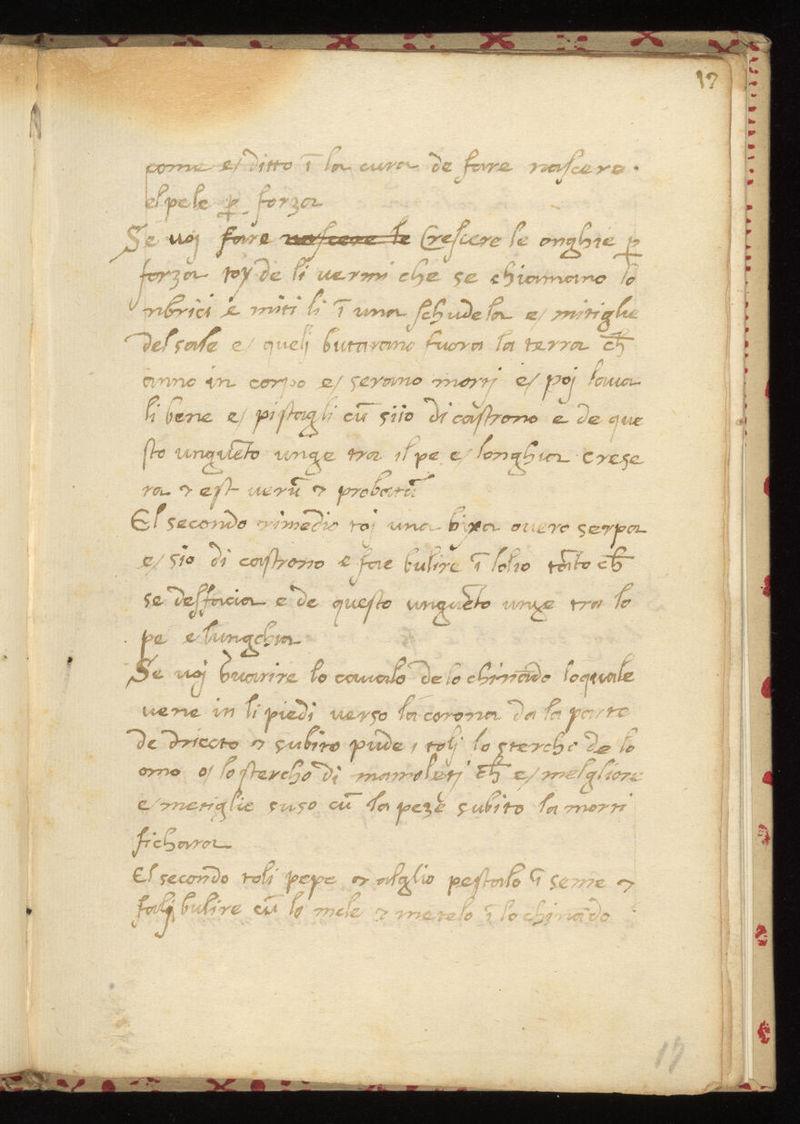 17
come e/ ditto ī la cura de fare nascere.
el pele p̱ forza
Se uoj fare nascere le Crescere le onghie p̱
forza toy de li uermi che se chiamano lo
nbrici e miti li ī una schudela e/ mitiglie
del sale e/ quelj butarano fuora la terra ch̄
anno in corpo e/ serano mortj e/ poj laua
li bene e/ pistagli cū siio di castrono e de que
sto unguēto unge tra il pe e/ longhia cresе
ra & est uerū & probatū
El secondo rimedio toj una bixa ouero serpa
e/ sio di castrono e fae bulire ī lolio tāto ch̄
se desfacia e de questo unguēto unge tra lo
pe e lungchia
Se uoj guarire lo caualo de lo chinādo loquale
uene in li piedi uerso la corona da la parte
de driecto & subito pūde i tolj lo stercho de lo
omo o/ lo stercho di mamoletj ch̄ e/ melgliore
e/ metiglie suso cū la peze subito la morti
fichara
El secondo toli pepe & alglio pestalo ī seme &
fali bulire cū lo mele & metelo ī lo chinādo
17